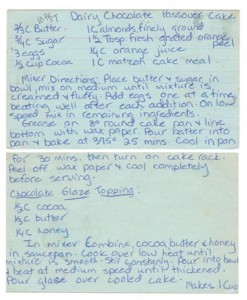 Dairy Chocolate Passover Cake
2/3 C Butter 1 C almonds, finely ground
3/4 C Sugar 1 1/2 Tbsp fresh grated orange peel
3 eggs 1/4 C orange juice
1/2 cup Cocoa 1 C matzah cake meal
Mixer Directions: Place butter & sugar in
bowl, mix on medium until mixture is
creamed & fluffy. Add eggs one at a time,
beating well after each addition. On low
speed mix in remaining ingredients.
Grease an 8" round cake pan & line
bottom with wax paper. Pour batter into
pan & bake at 375° 25 mins. Cool in pan
For 30 mins. then turn on cake rack.
Peel off wax paper & cool completely
before serving.
Chocolate Glaze Topping:
1/3 C cocoa
1/3 C butter
1/4 C honey
In mixer: Combine, cocoa, butter & honey
in saucepan. Cook over low heat until
mixture is smooth - Stir constantly. Pour into bowl
& beat at medium speed until thickened.
Pour glaze over cooled cake.
Makes 1 Cup